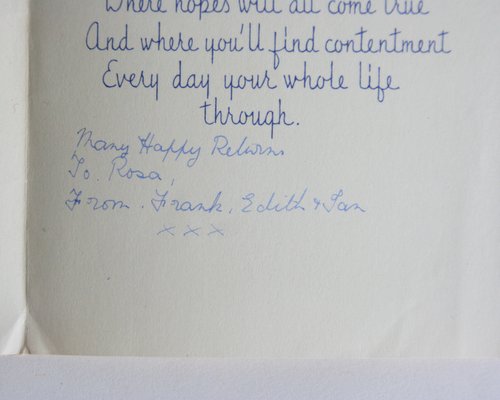 Where hopes will all come true
And where you'll find contentment
Every day your whole life
through.
Many Happy Returns
To. Rosa,
From. Frank, Edith & Ian
x x x